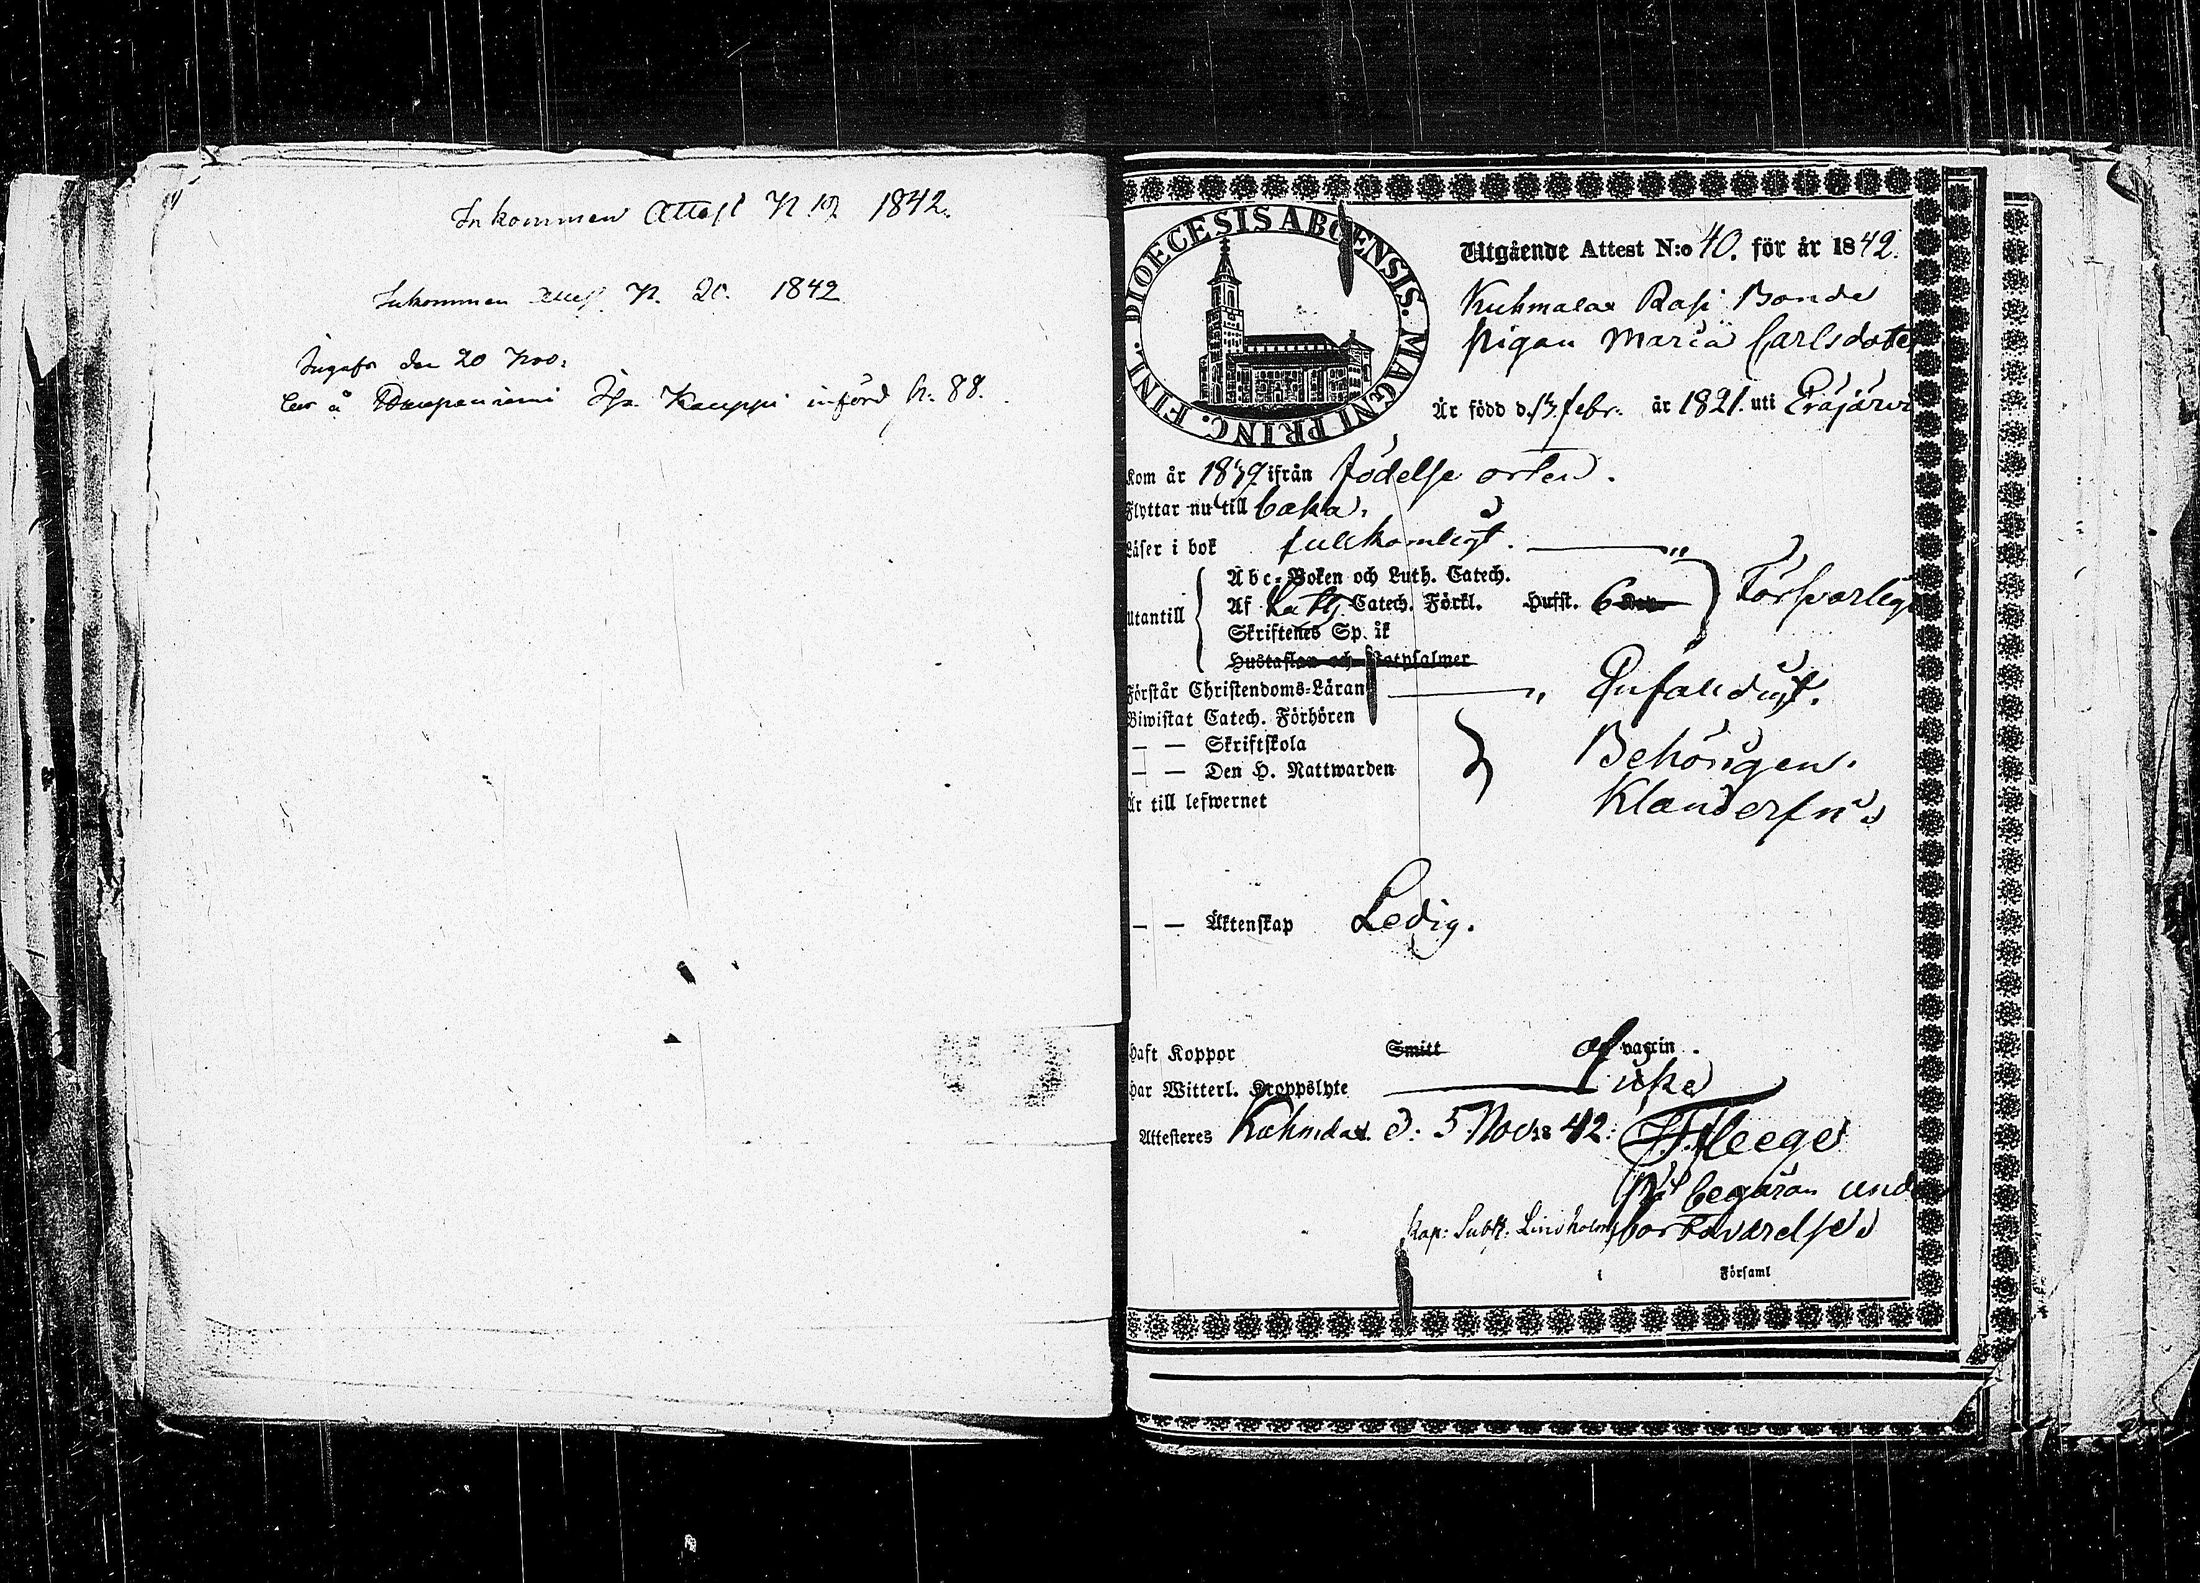 Inkommen Attest N 19 1842.
Inkommen Attest N. 20. 1842
Ingafs den 20 Nov:
bor å Isa Kauppi införd p. 88.
DIOECESIS ABOENSIS. MAGNI PRINC. FINL.
Utgående Attest N:o 40. för år 1842.
Kuhmalax Rasi Bonde
pigan Maria Carlsdoter
Är född d. 13 febr. år 1821. uti Eräjärvi
Kom år 1839 ifrån födelse orten.
Flyttar nu till baka.
Läser i bok fullkomligt. "
Abc-Boken och Luth. Catech.
Utantill Af Catech. Förkl. Hufst. 6 Försvarligt
Skriftenes Språk
Hustaflan och Botpsalmer
Förstår Christendoms-Läran " Enfaldigt.
Biwistat Catech. Förhören
— — Skriftskola Behörigen.
— — Den H. Nattwarden
Är till lefwernet Klanderfri
— — Äktenskap Ledig.
Haft Koppor Smitt af vaccin.
Har Witterl. Kroppslyte
Attesteres Kuhmalax d. 5 Nov 1842:
På begäran under
Kap: Subst: Lindholms bortavarelse
i Församl